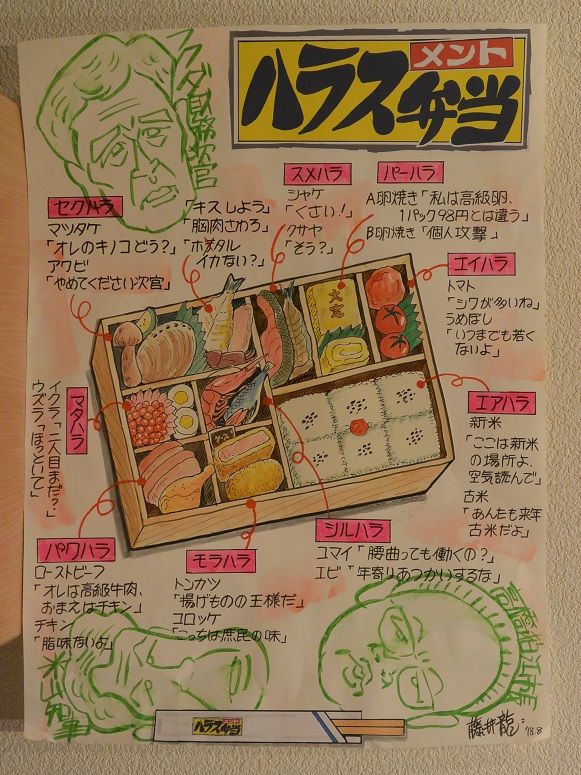 ハラスメント弁当
フクダ財務次官
セクハラ
マツタケ
「オレのキノコどう?」
アワビ
「やめてください次官」
「キスしよう」
「胸肉さわろ」
「ホタル
イカない?」
スメハラ
シャケ
「くさい!」
クサヤ
「そう?」
パーハラ
A卵焼き「私は高級卵、
1パック98円とは違う」
B卵焼き「個人攻撃」
エイハラ
トマト
「シワが多いね」
うめぼし
「いつまでも若く
ないよ」
エアハラ
新米
「ここは新米
の場所よ、
空気読んで」
古米
「あんたも来年
古米だよ」
マタハラ
イクラ「二人目まだ?」
ウズラ「ほっといて」
パワハラ
ローストビーフ
「オレは高級牛肉、
おまえはチキン」
チキン
「脂味ないよ」
モラハラ
トンカツ
「揚げものの王様だ」
コロッケ
「こっちは庶民の味」
シルハラ
コマイ「腰曲っても働くの?」
エビ「年寄りあつかいするな」
ハラスメント弁当
藤井龍二
'18.8